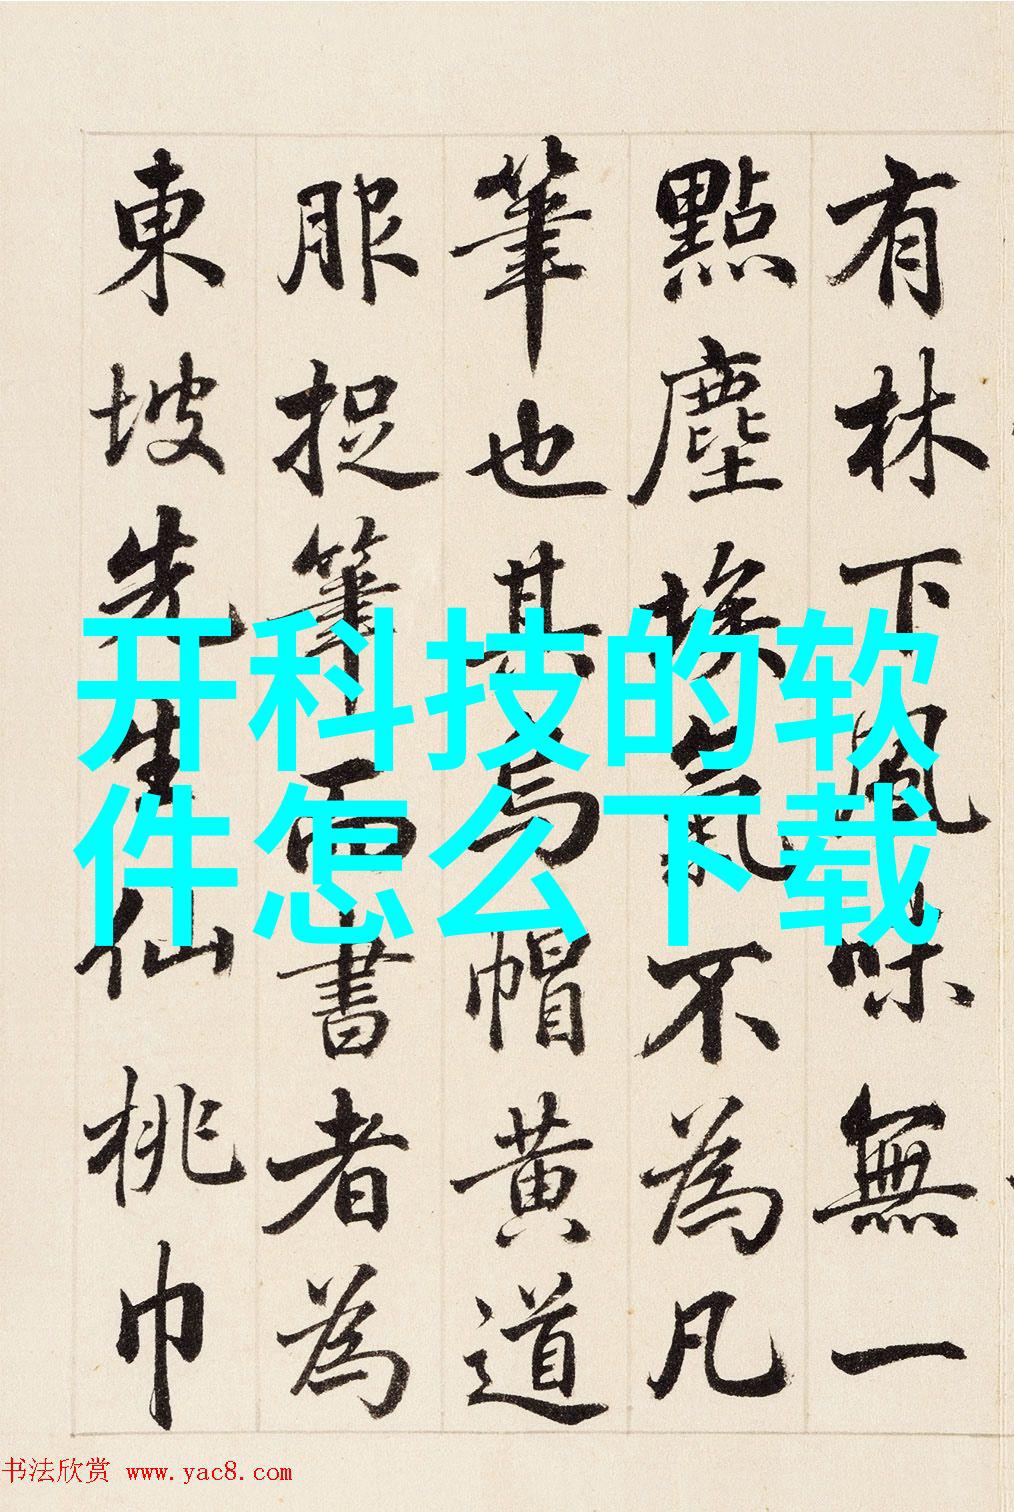 有林下風味無一
點塵埃氣不為凡
筆也其烏帽黃道
服捉筆而書者為
東坡先生仙桃巾
开科技的软
件怎么下载
书法欣赏 www.yac8.com